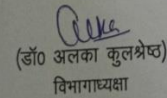 (डॉ० अलका कुलश्रेष्ठ)
विभागाध्यक्षा